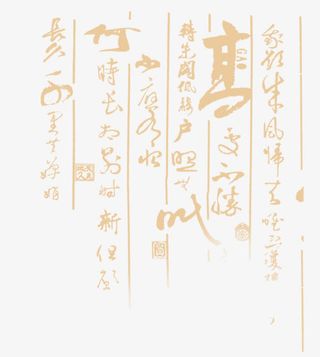 我欲乘風歸去唯恐瓊
高處不勝
轉朱閣低綺戶照無眠
不應有恨
何時長向別時 但願
長久千里共嬋娟